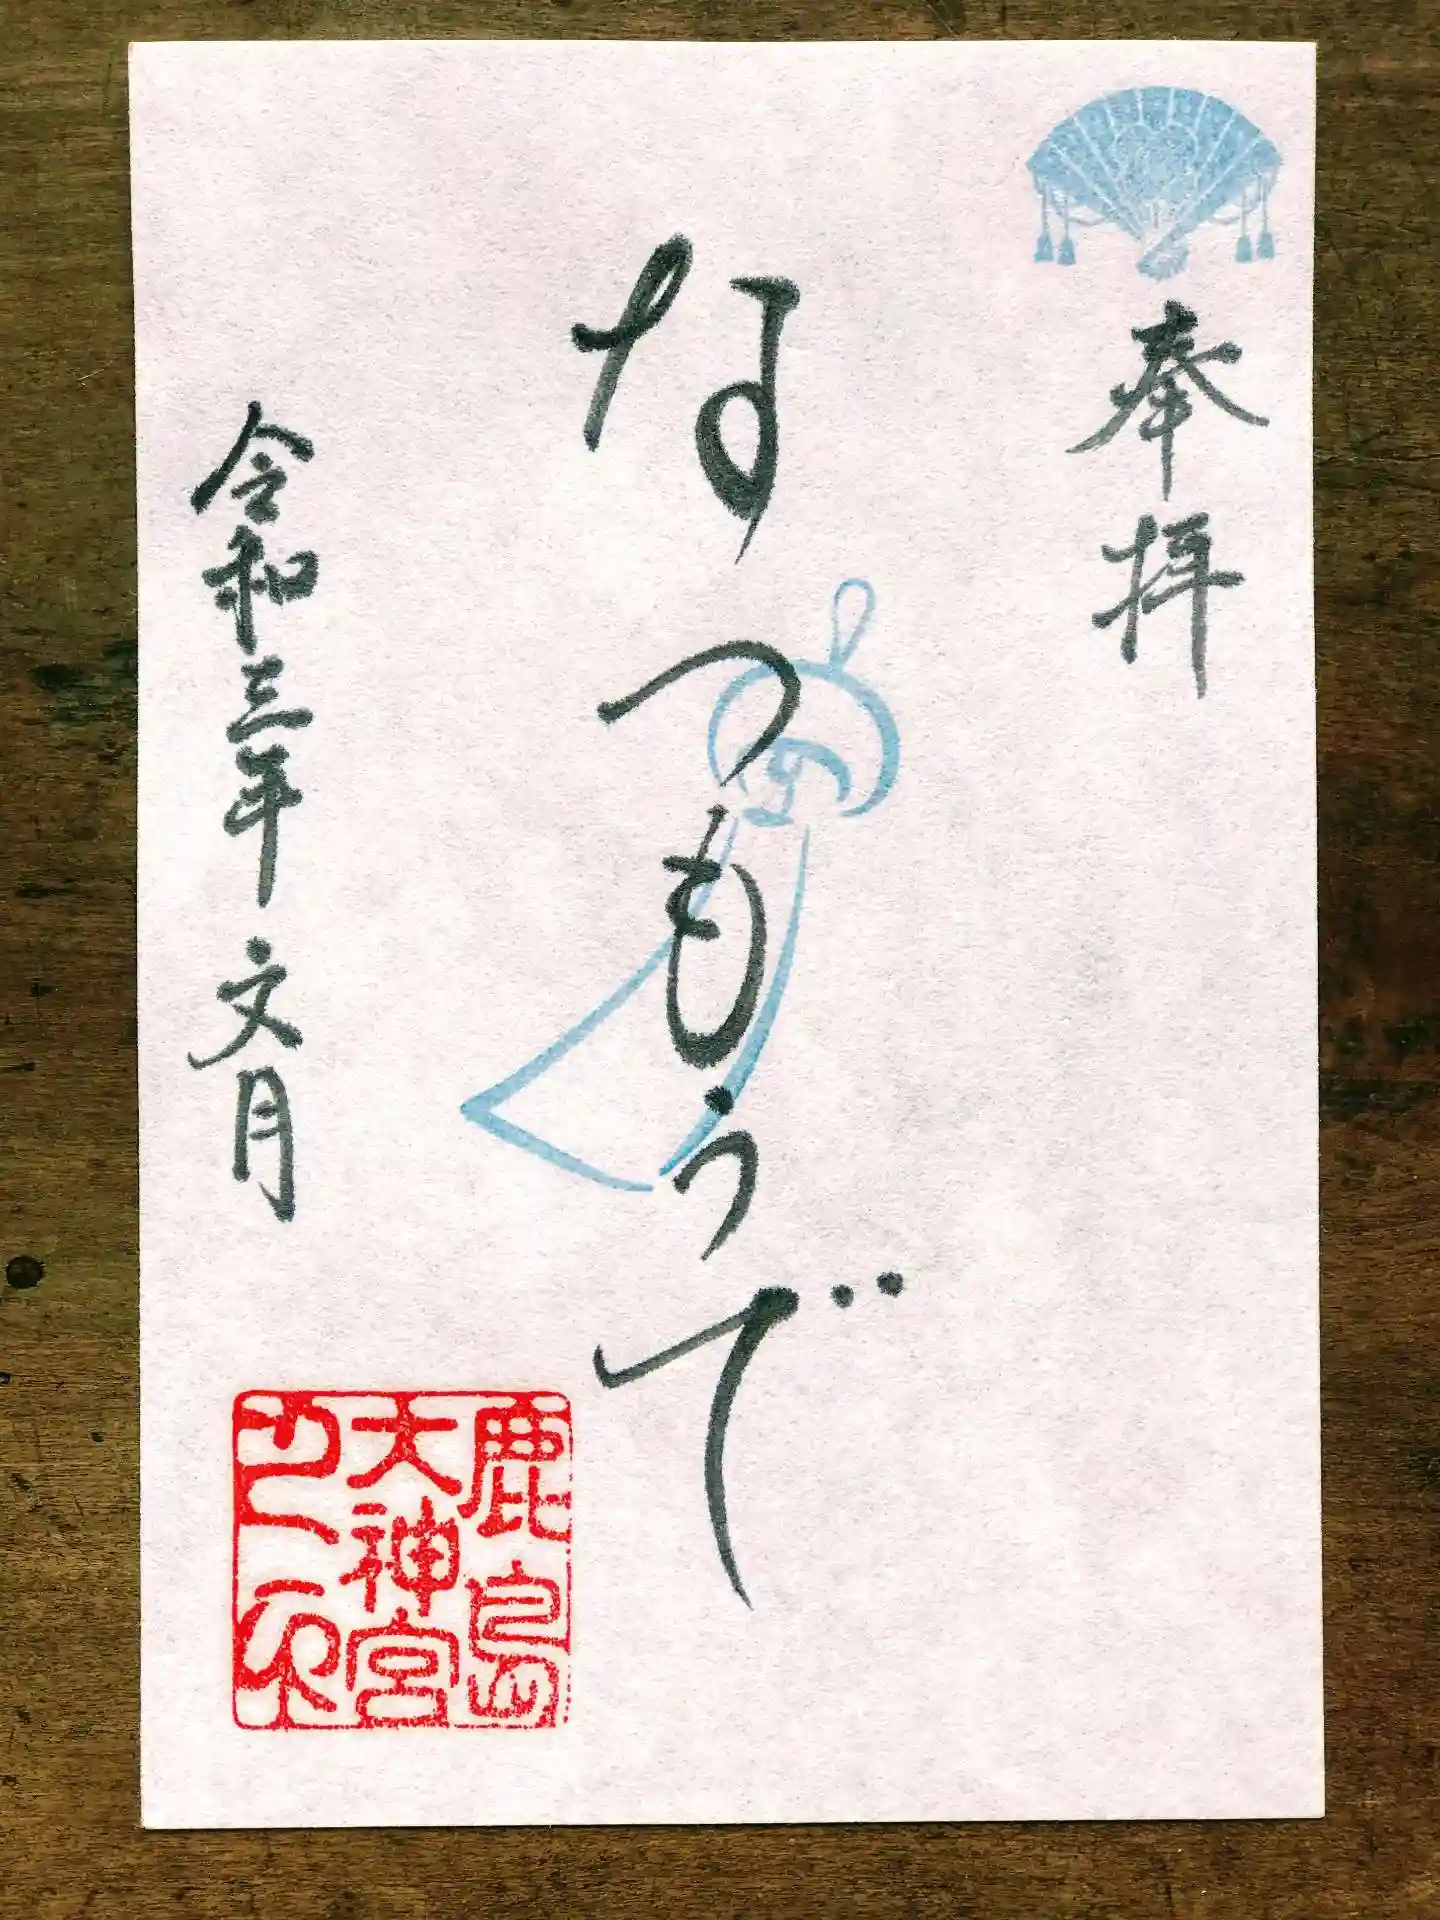 奉拝
なつもうで
令和三年文月
鹿島
大神宮
之印